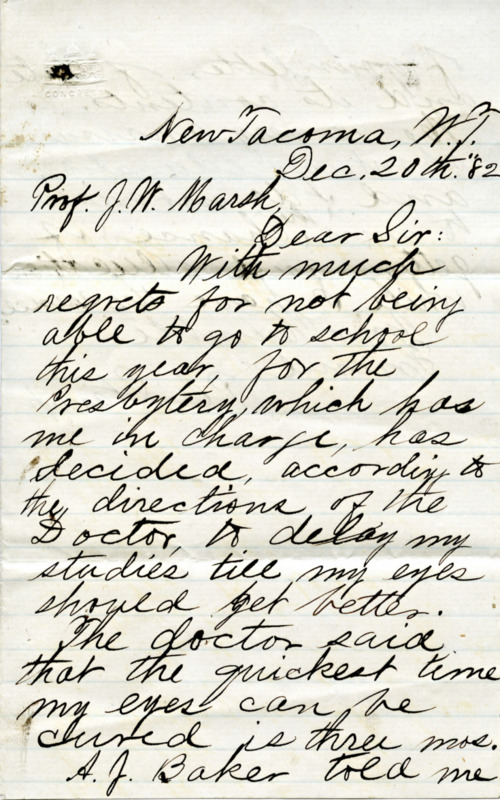 CONGRESS
New Tacoma, W.T.
Dec. 20th. '82
Prof. J. W. Marsh,
Dear Sir:
With much
regrets for not being
able to go to school
this year, for the
Presbytery, which has
me in charge, has
decided, according to
the directions of the
Doctor, to delay my
studies till my eyes
should get better.
The doctor said
that the quickest time
my eyes can be
cured is three mos.
A. J. Baker told me